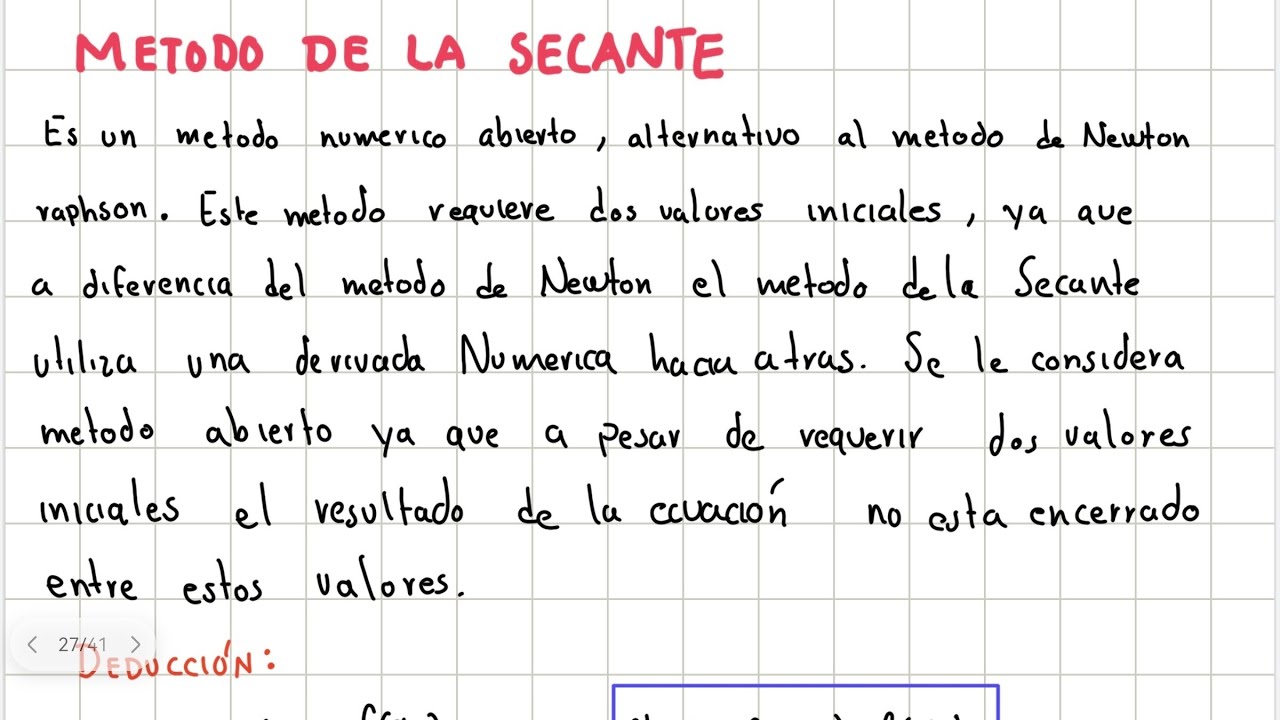 METODO DE LA SECANTE
Es un metodo numerico abierto, alternativo al metodo de Newton
raphson. Este metodo requiere dos valores iniciales, ya que
a diferencia del metodo de Newton el metodo de la Secante
utiliza una derivada Numerica hacia atras. Se le considera
metodo abierto ya que a pesar de requerir dos valores
iniciales el resultado de la ecuación no esta encerrado
entre estos valores.
27/41
DEDUCCIÓN: